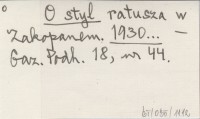 O styl ratusza w
Zakopanem. 1930... —
Gaz. Podh. 18, nr 44.